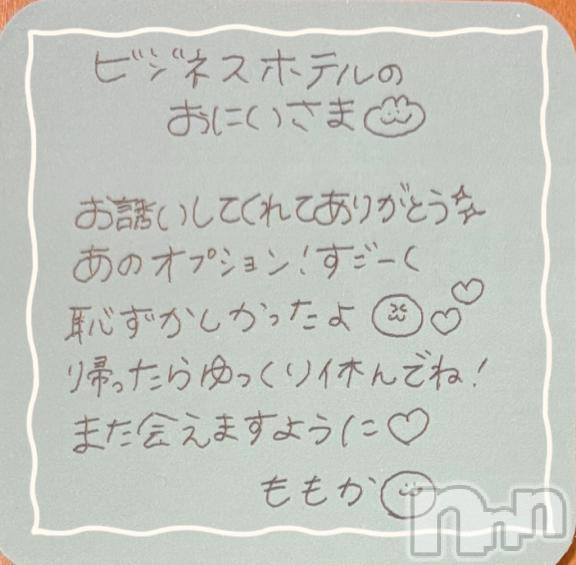 ビジネスホテルの
おにいさま
お誘いしてくれてありがとう
あのオプション!すごーく
恥ずかしかったよ
帰ったらゆっくり休んでね!
また会えますように♡
ももか
nnn